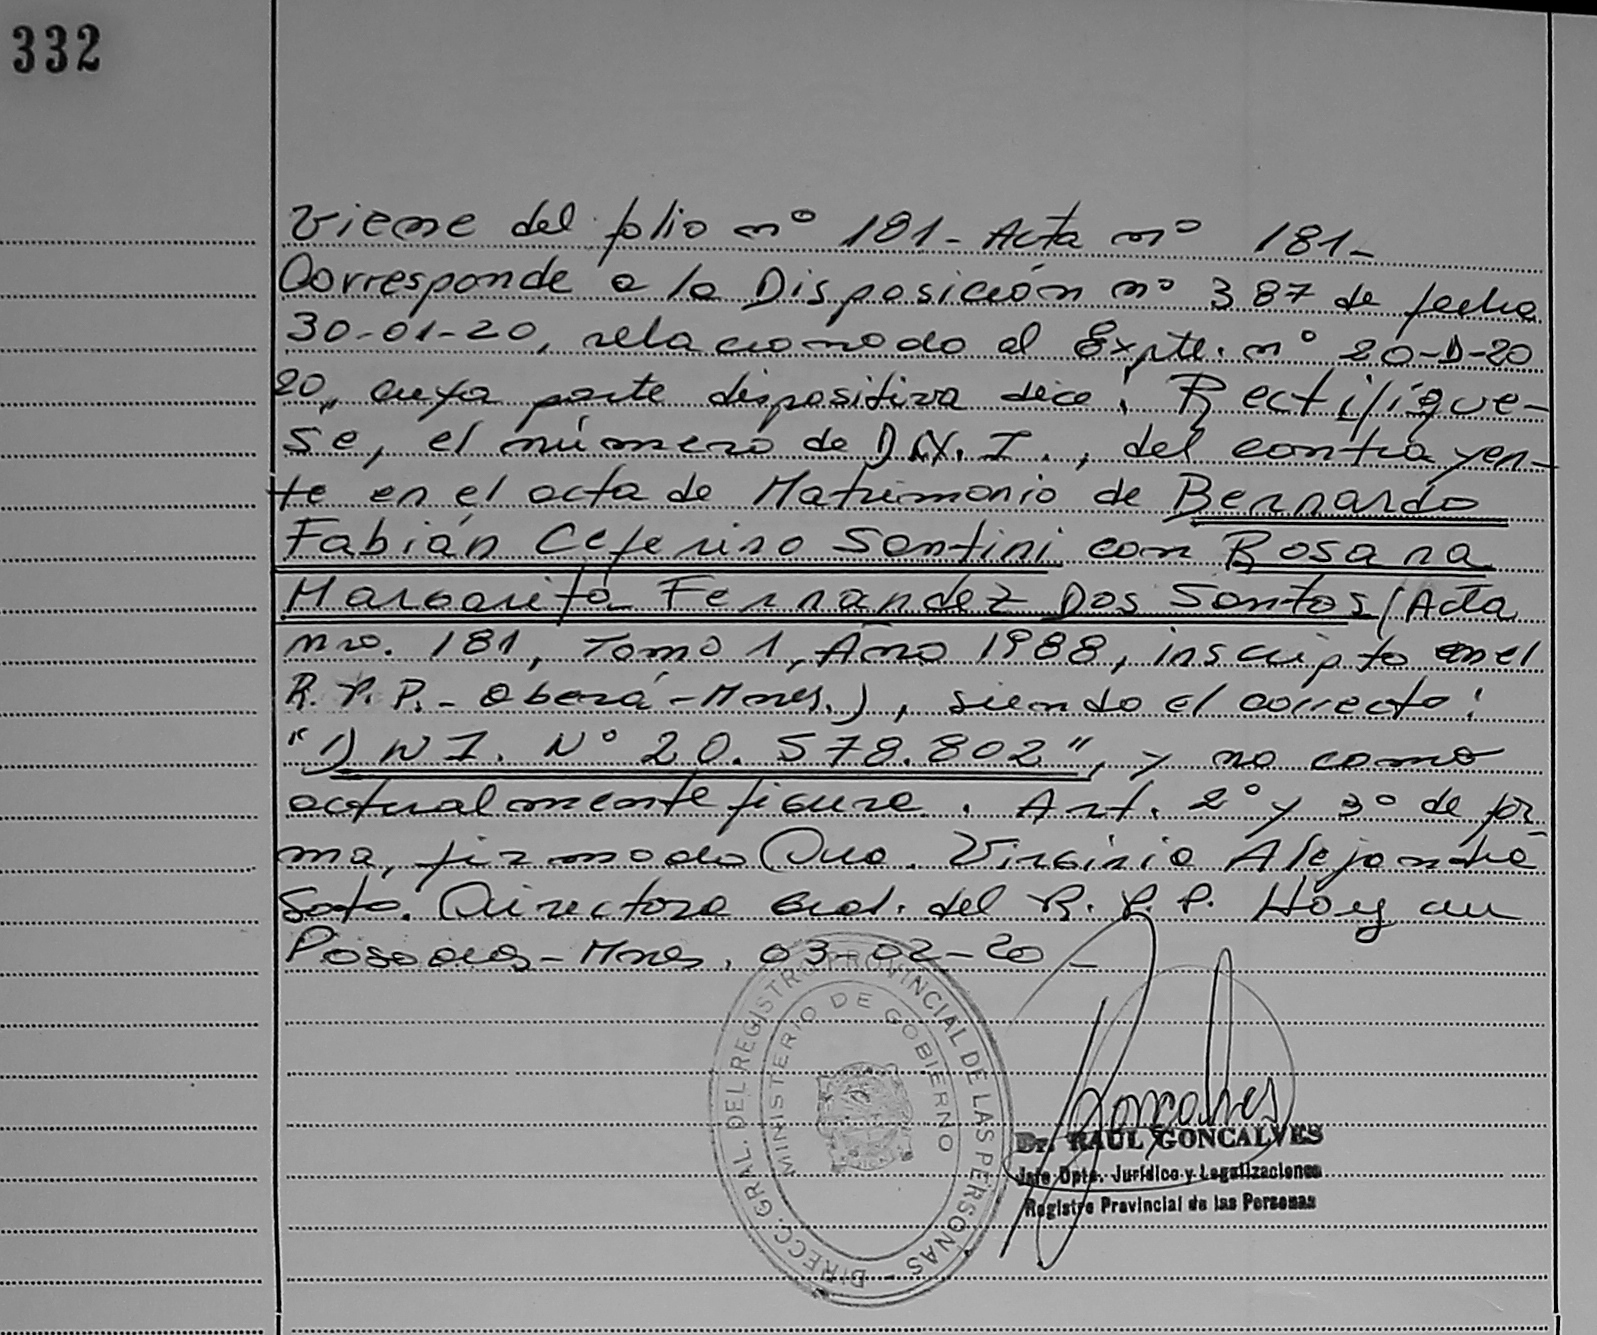 332
Viene del folio nº 181- Acta nº 181-
Corresponde a la Disposición nº 387 de fecha
30-01-20, relacionado al Expte. nº 20-D-20
20, cuya parte dispositiva dice: Rectifíque-
se, el número de D.N.I., del contrayen-
te en el acta de Matrimonio de Bernardo
Fabián Ceferino Santini con Rosana
Margarita Fernandez Dos Santos (Acta
nro. 181, Tomo 1, Año 1988, inscripto en el
R.P.P.- Oberá-Mnes.), siendo el correcto:
"DNI. Nº 20.578.802", y no como
actualmente figura. Art. 2º y 3º de for-
ma, firmado Dra. Virginia Alejandra
Soto. Directora Gral. del R.P.P. Hoy en
Posadas-Mnes. 03-02-20-
DIRECC. GRAL. DEL REGISTRO PROVINCIAL DE LAS PERSONAS -
MINISTERIO DE GOBIERNO
Goncalves
Dr. RAUL GONCALVES
Jefe Dpto. Jurídico y Legalizaciones
Registro Provincial de las Personas